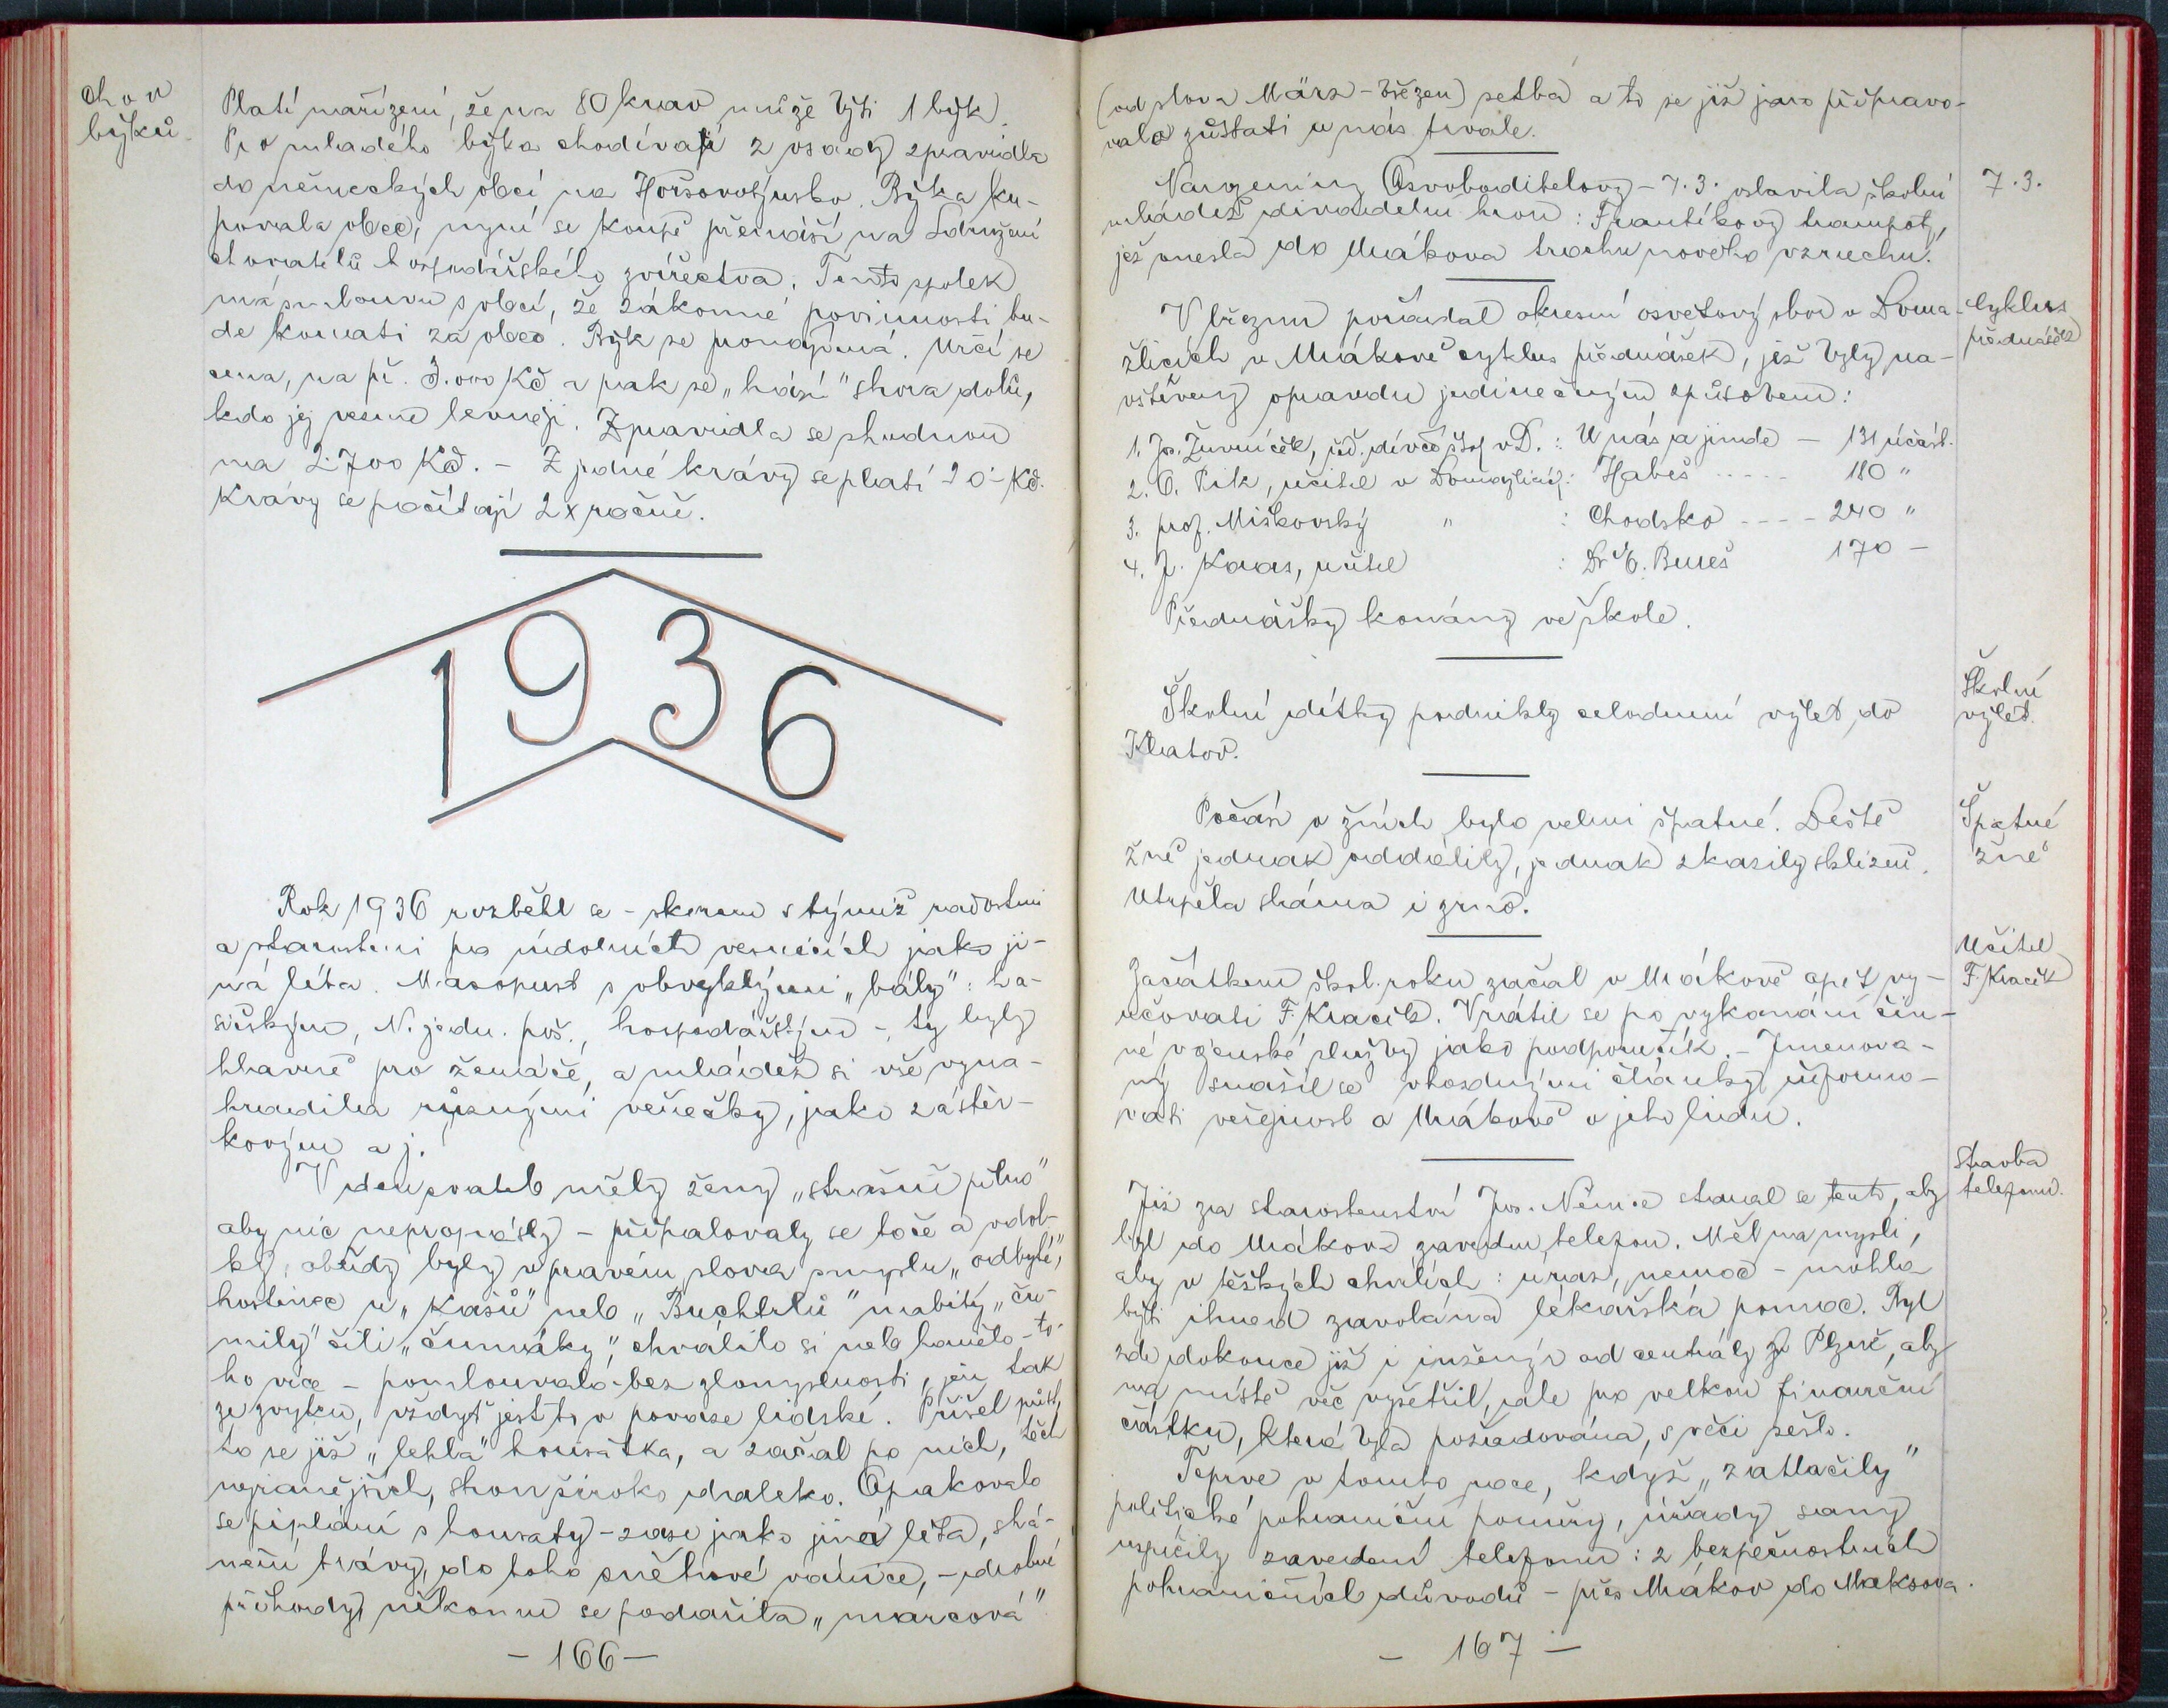 chov
býků.
Platí nařízení, že na 80 krav může býti 1 býk).
Pro mladého býka chodívají z osady zpravidla
do německých obcí na Horšovotýnsko. Býka ku-
povala obec, nyní se koupě přenáší na Sdružení
chovatelů hospodářského zvířectva. Tento spolek
má smlouvu s obcí, že zákonné povinnosti bu-
de konati za obec. Býk se pronajímá. Určí se
cena, na př. 3.000 Kč a pak se „hází" shora dolů,
kdo jej vezme levněji. Zpravidla se shodnou
na 2.700 Kč. – Z jedné krávy se platí 20.- Kč.
Krávy se počítají 2x ročně.
1936
Rok 1936 rozběhl se – skorem s týmiž radostmi
a starostmi po údolních vesničkách jako ji-
ná léta. Masopust s obvyklými „bály": ha-
sičským, N. jedn. poš., hospodářským –, ty byly
hlavně pro ženáče, a mládež si vše vyna-
hradila různými věnečky, jako zástěr-
kovým a j.
V den svateb měly ženy „strašně pilno"
aby nic nepropásly – připalovaly se toče a vdol-
ky, obědy byly v pravém slova smyslu „odbyté",
hostinec u „Kašů" nebo „Buchtelů" nabitý „ču-
mily" čili „čumáky", chválilo si nebo hanělo – to-
ho více – pomlouvalo bez zlomyslnosti, jen tak
ze zvyku, vždyť jest to v povaze lidské. Přišel půst,
to se již „lehla" housátka, a začal po nich, těch
nejranějších, shon široko daleko. Opakovalo
se piplání s housaty – zase jako jiná léta, shá-
nění trávy, do toho sněhové vánice, – drobné
příhody, někomu se podařila „marcová"
– 166 –
(od slova März – březen) setba a to se již jaro připravo-
valo zůstati u nás trvale.
Narozeniny Osvoboditelovy – 7.3. oslavila školní
mládež divadelní hrou: Frantíkovy trampoty,
jež vnesla do Mrákova trochu nového vzruchu.
7.3.
V březnu pořádal okresní osvětový sbor v Doma-
žlicích v Mrákově cyklus přednášek, jež byly na-
vštíveny opravdu jedinečným způsobem:
Cyklus
přednášek
1. Jos. Žurníček, řed. dívčí škol v D.: U nás a jinde – 131 účast.
2. O. Pik, učitel v Domažlicích: Habeš ----- 180 "
3. prof. Miškovský " : Chodsko ---- 240 "
4. J. Kraus, učitel : Dr E. Beneš 170 –
Přednášky konány ve škole.
Školní dítky podnikly celodenní výlet do
Klatov.
Školní
výlet.
Počasí o žních bylo velmi špatné. Deště
žně jednak oddálily, jednak zkazily sklizeň.
Utrpěla sláma i zrno.
Špatné
žně
Začátkem škol. roku začal v Mrákově opět vy-
učovati F. Kracík. Vrátil se po vykonání čin-
né vojenské služby jako podporučík. – Jmenova-
ný snažil se vhodnými články informo-
vati veřejnost o Mrákově a jeho lidu.
Učitel
F. Kracík
Již za starostenství Jos. Němce staral se tento, aby
byl do Mrákova zaveden telefon. Měl na mysli,
aby v těžkých chvílích: úraz, nemoc – mohla
býti ihned zavolána lékařská pomoc. Byl
zde dokonce již i inženýr od centrály ze Plzně, aby
na místě věc vyšetřil, ale pro velkou finanční
částku, která byla požadována, s věci sešlo.
Teprve v tomto roce, když „zatlačily"
politické pohraniční poměry, úřady samy
uspíšily zavedení telefonu: z bezpečnostních
pohraničních důvodů – přes Mrákov do Maksova.
Stavba
telefonu.
– 167 –